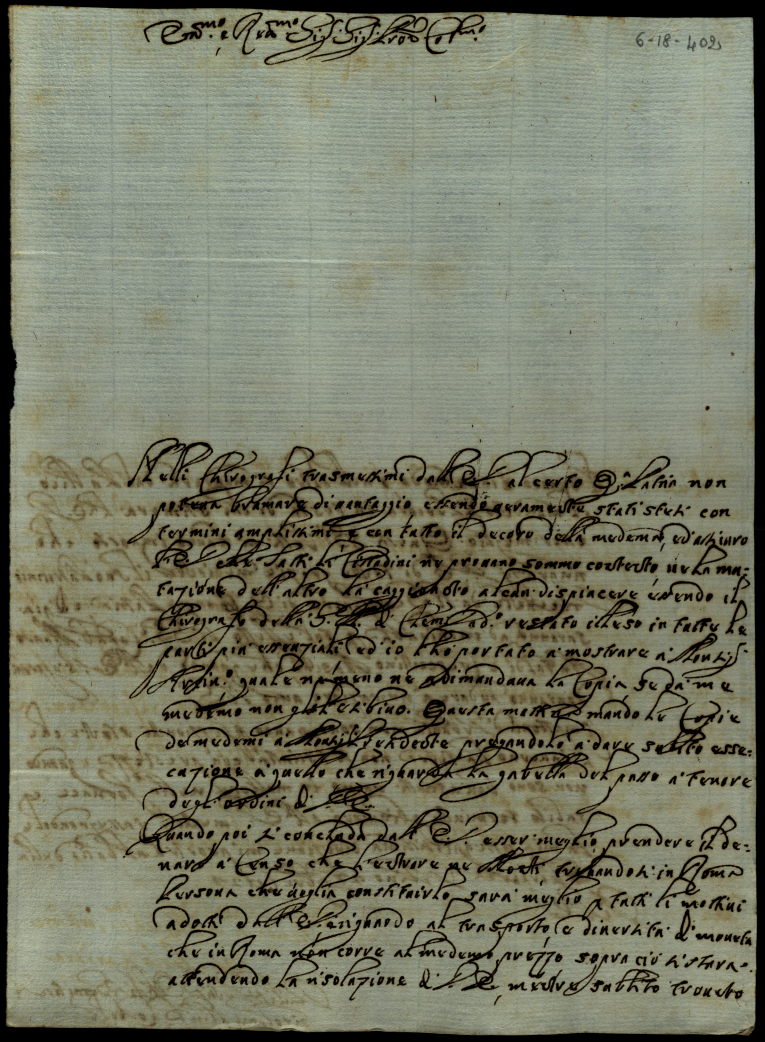 Em.mo e Rev.mo Sig.r Sig.r Pron Col.mo
6-18-402
Nelli Chirografi trasmessimi dall' E.V. al certo q.a Città non
poteva bramare di vantaggio, essendo veramente stati stesi con
termini amplissimi e con tutto il decoro della medema, ed assicuro
V.E. che tutti li Cittadini ne provano sommo contento, ne la mu-
tazione dell' altro ha caggionato alcun dispiacere essendo il
Chirografo della di Clem. restato illeso in tutte le
parti più essenziali, ed io l'ho portato a mostrare a Monsig.r
quale ne meno ne adimandava la Copia se da me
medemo non gli l'esibivo. Questa mattina mando le Copie
de medemi a Monsig.r pregandolo a dare subito esse-
cuzione a quello che riguarda la gabella del passo a tenore
degl' ordini di V.E.
Quando poi si concluda dall' E.V. esser meglio prendere il de-
naro a Censo che l'estrarre ne Monti trovandosi in Roma
Persona che voglia constituirlo sarà meglio p tutti li motivi
adotti dall' E.V. riguardo al trasporto, e diversità di moneta
che in Roma non corre al medemo prezzo sopra ciò si starà
attendendo la risoluzione di V.E., mentre subbito trovato